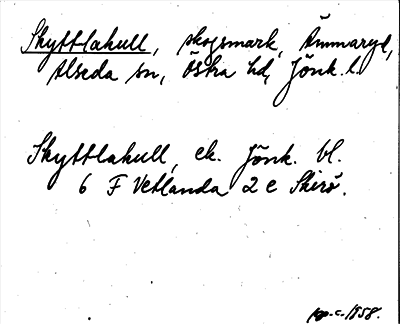 Skyttlakull, skogsmark, Ämmaryd,
Alseda sn, Östra hd, Jönk. l.
Skyttlakull, ek. Jönk. bl.
6 F Vetlanda 2 e Skirö.
1958.